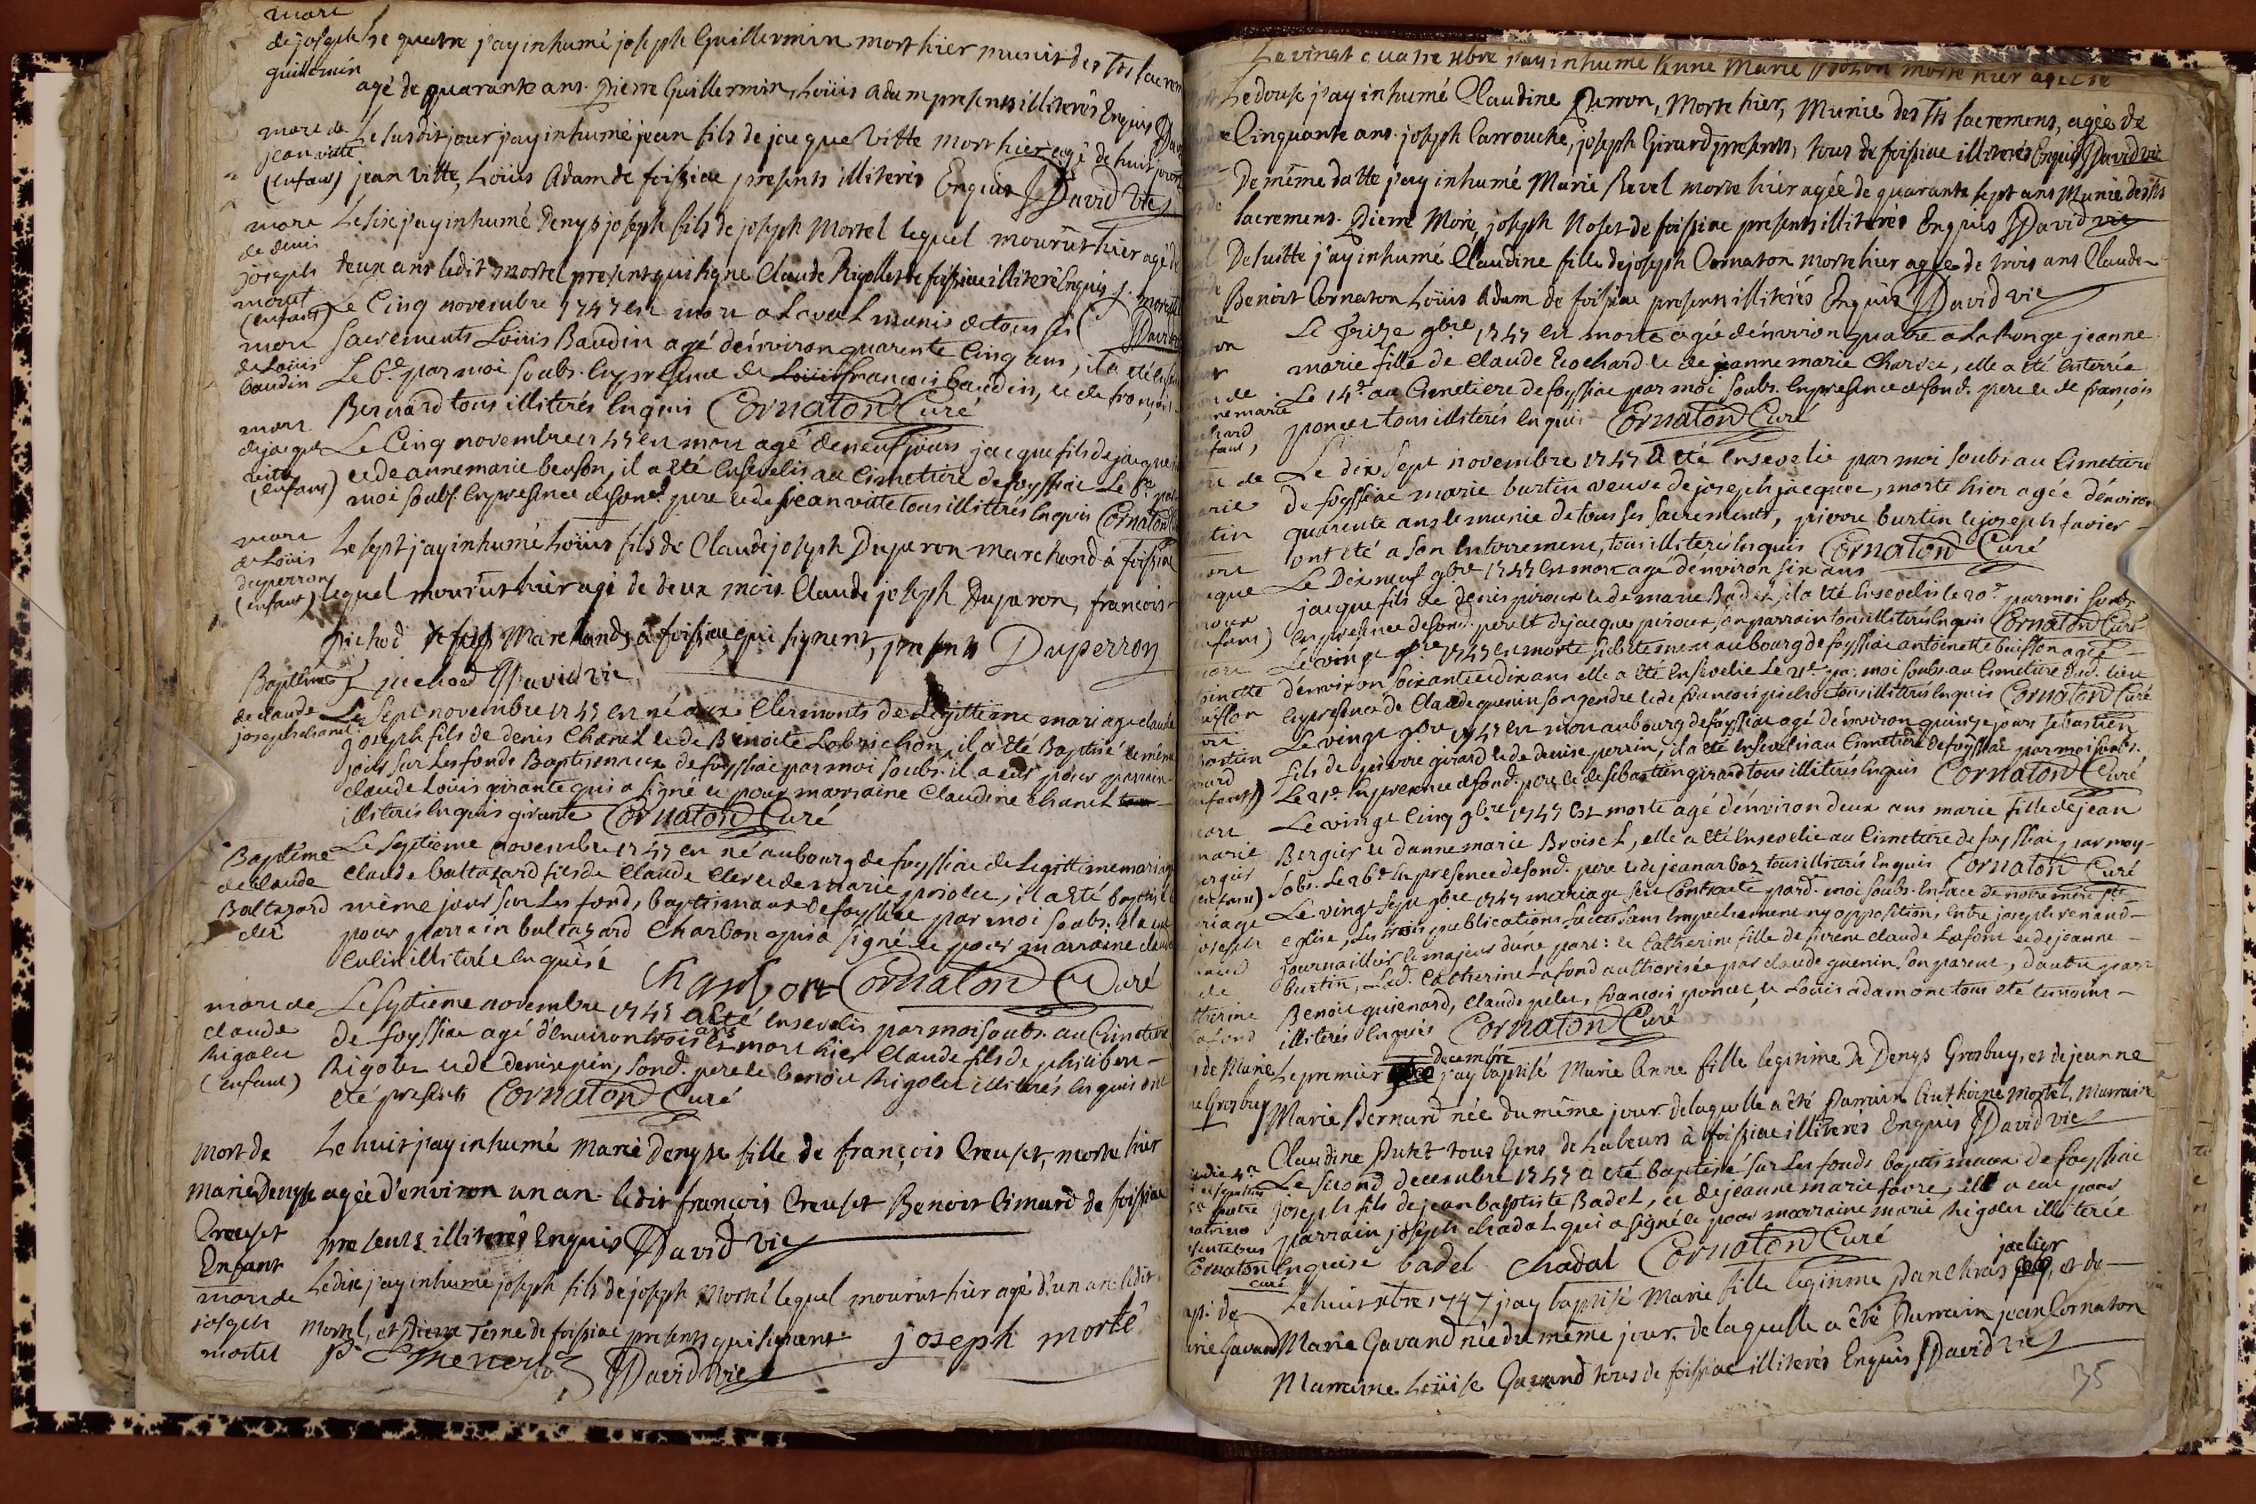 mort
de joseph
guillermin
le quatre j'ay inhumé joseph Guillermin mort hier munit des sts sacrem
agé de quarante ans. pierre Guillermin, Loüis adam presents illiterés Enquis JDavid
mort de
jean vitte
(enfant)
Le susdit jour j'ay inhumé jean fils de jacque vitte mort hier agé de huit jours
jean vitte, Loüis Adam de foissiac presents illiterés Enquis JDavid vic
mort
de denis
joseph
mortel
(enfant)
Le sixe j'ay inhumé denys joseph fils de joseph Mortel lequel mourut hier agé de
deux ans ledit mortel present qui signe Claude Rigollet de foissiac illiteré Enquis J. mortel
JDavid
mort
de Loüis
baudin
Le Cinq novembre 1747 est mort a Laval munis de tous ses
sacrements Loüis Baudin agé d'énviron quarente Cinq ans, il a eté
Le 6e par moi soubs. En presence de francois baudin, et de françois
Bernard tous illiterés Enquis Cornaton Curé
mort
de jacque
vitte
(enfant)
Le Cinq novembre 1747 est mort agé de neuf jours jacque fils de jacque
et de anne marie benson, il a eté Ensevelis au Cimetiere de foyssiac Le 6e par
moi soubs. En presence de sond. pere et de jean vitte tous illittrés Enquis Cornaton
mort
de Loüis
duperron
(enfant)
Le sept j'ay inhumé Loüis fils de Claude joseph Duperon marchand à foissiac
lequel mourut hier agé de deux mois Claude joseph Duperon, francois
pichod Marchands à foissiac qui signent, presents Duperron
f pichod JDavid vic
Baptême
de claude
joseph chanel
Le Sept novembre 1747 est né aux Clermonts de Legittime mariage claude
joseph fils de denis Chanel et de Benoite Labrichon, il a eté Baptisé le même
jour sur Les fonds Baptismaux de foyssiac par moi soubs. il a eu pour parrain
claude Louis girante qui a signé et pour marraine Claudine chanel
illiterés Enquis girante Cornaton Curé
Baptême
de claude
Baltazard
clet
Le Septieme novembre 1747 est né au bourg de foyssiac de Legittime mariage
Claude baltazard fils de Claude Clet et de marie priolet, il a eté baptisé
même jour sur Les fonds baptismaux de foyssiac par moi soubs. il a eu
pour parrain baltazard Charbon qui a signé et pour marraine
illiterée Enquise Charbon Cornaton Curé
mort de
claude
Rigolet
(enfant)
Le Septieme novembre 1747 a eté Ensevelis par moi soubs. au Cimetiere
de foyssiac agé d'énviron trois ans mort hier Claude fils de philibert
Rigolet et de denise pin, sond. pere et benoit Rigolet illiterés Enquis ont
eté presents Cornaton Curé
Mort de
Marie Denyse
Creuset
Enfant
Le huit j'ay inhumé Marie Denyse fille de françois Creuset, morte hier
agée d'environ un an. ledit françois Creuset Benoit Simard de foissiac
presents illiterés Enquis JDavid vic
mort de
joseph
mortel
Le dixe j'ay inhumé joseph fils de joseph Mortel lequel mourut hier agé d'un an ledit
Mortel, et Pierre Terne de foissiac presents qui signent joseph mortel
JDavid vic
Le vingt quatre xbre j'ay inhumé Anne Marie morte hier agée de
Le douse j'ay inhumé Claudine Perron, Morte hier, Munie des sts sacremens, agée de
Cinquante ans. joseph Carrouche, joseph Girard presents, tous de foissiac illiterés Enquis JDavid vic
De même datte j'ay inhumé Marie Revel morte hier agée de quarante sept ans Munie des sts
sacremens. Pierre More, joseph Noset de foissiac presents illiterés Enquis JDavid vic
De suitte j'ay inhumé Claudine fille de joseph Cornaton morte hier agée de trois ans Claude
Benoit Cornaton Loüis Adam de foissiac presents illiterés Enquis JDavid vic
Le treize 9bre 1747 est morte agée d'énviron quatre a Laronge jeanne
marie fille de Claude Cochard et de jeanne marie Chardet, elle a eté Enterrée
Le 14e au Cimetiere de foyssiac par moi soubs. En presence de sond. pere et de françois
poncet tous illiterés Enquis Cornaton Curé
Le dix sept novembre 1747 a eté Ensevelie par moi soubs. au Cimetiere
de foyssiac marie burtin veuve de joseph jacquet, morte hier agée d'énviron
quarente ans et munie de tous ses sacrements, pierre burtin et joseph favier
ont eté a son Enterrement, tous illiterés Enquis Cornaton Curé
Le Dix neuf 9bre 1747 est mort agé d'énviron six ans
jacque fils de denis piroux et de marie Badel, il a eté Ensevelis le 20e par moi soubs.
En presence de sond. pere et de jacque piroux, son parrain tous illiterés Enquis Cornaton Curé
Le vingt 9bre 1747 est morte subitement au bourg de foyssiac antoinette buisson agée
d'énviron soixante et dix ans elle a eté Ensevelie Le 21e par moi soubs. au Cimetiere dud. lieu
En presence de Claude guenin son gendre et de françois pichod tous illittrés Enquis Cornaton Curé
Le vingt 9bre 1747 est mort au bourg de foyssiac agé d'énviron quinze jours Sebastien
fils de pierre girard et de denise perrin, il a eté Ensevelis au Cimetiere de foyssiac par moi soubs.
Le 21e En presence de sond. pere et de sebastien girard tous illiterés Enquis Cornaton Curé
Le vingt Cinq 9bre 1747 Est morte agé d'énviron deux ans marie fille de jean
Bergier et d'anne marie Broiset, elle a eté Ensevelie au Cimetiere de foyssiac, par moy
Sobs. Le 26e En presence de sond. pere et de jean arbaz tous illiterés Enquis Cornaton Curé
Le vingt Sept 9bre 1747 mariage a eté Contracté pard. moi soubs. En face de notre mere ste
eglise, Les trois publications faites sans Empechement ny opposition, Entre joseph renaud
journaillier et majeur d'une part: et Catherine fille de Claude Lafond et de jeanne
burtin, Lad. Catherine Lafond authorisée par claude guenin son parent, d'autre part
Benoit guienard, Claude pelet, françois poncet et Loüis adam ont tous eté temoins
illiterés Enquis Cornaton Curé
Le premier decembre j'ay baptisé Marie Anne fille legitime de Denys Grosbuy, et de jeanne
Marie Bernard née du même jour de laquelle a été Parrain Anthoine Mortel, Marraine
Claudine Putet tous Gens de Labeurs à foissiac illiterés Enquis JDavid vic
Le second decembre 1747 a eté baptisé sur Les fonds baptismaux de foyssiac
joseph fils de jean baptiste Badel, et de jeanne marie favre, il a eu pour
parrain joseph chadal qui a signé et pour marraine marie Rigolet illiterée
Enquise badel chadal Cornaton Curé
Cornaton
curé
Le huit xbre 1747 j'ay baptisé Marie fille legitime d'anthoine jaclier, et de
Marie Gavand née du même jour, de laquelle a été Parrain jean Cornaton
Marraine Loüise Gavand tous de foissiac illiterés Enquis JDavid vic
135